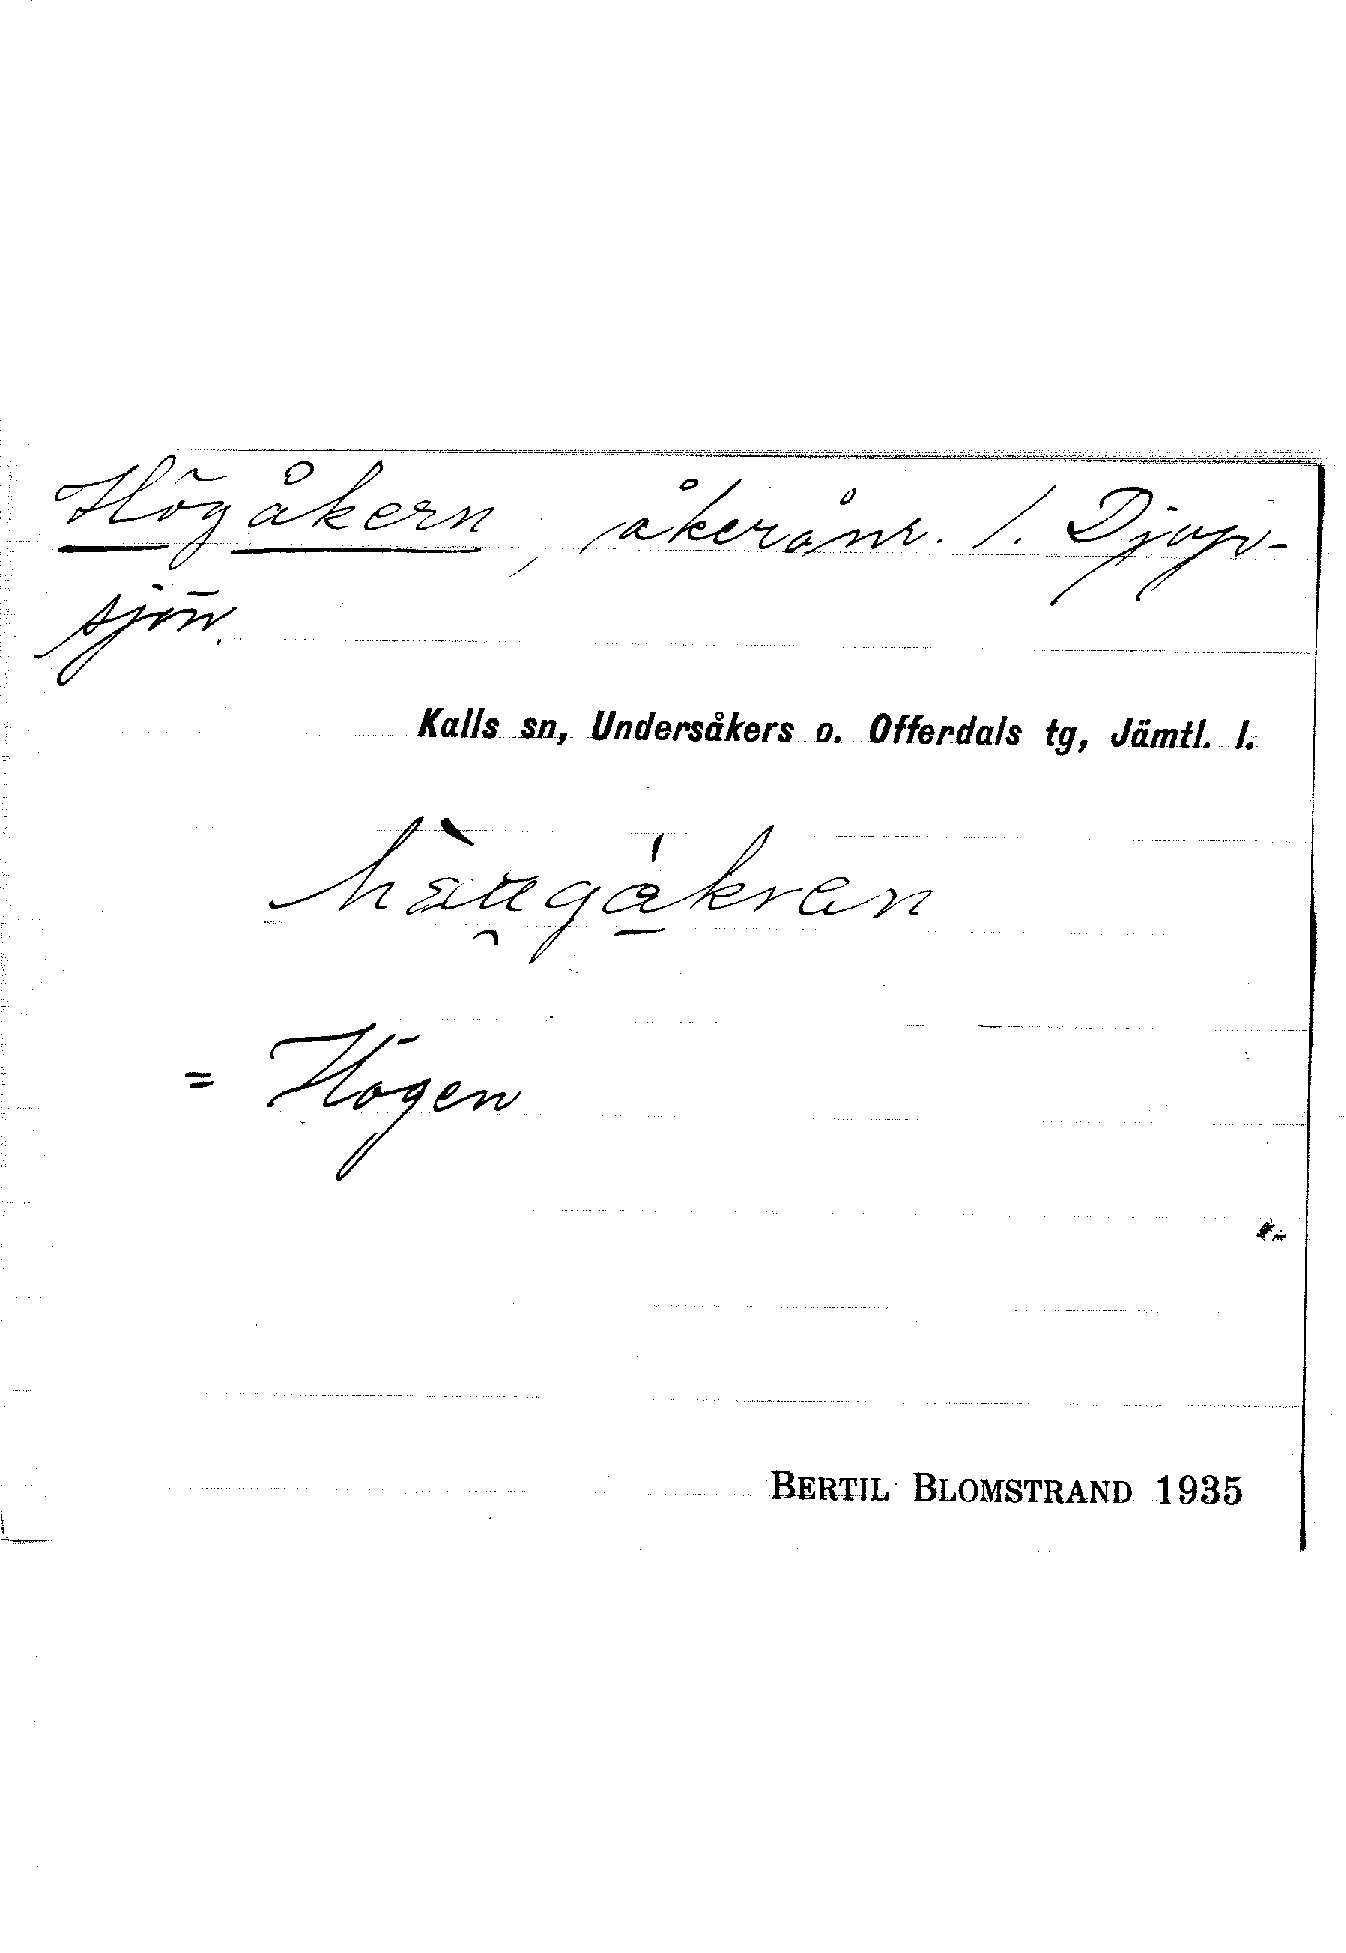 Högåkern, åker å nr. 1. Djup-
sjön.
Kalls sn, Undersåkers o. Offerdals tg, Jämtl. l.
= Högen
BERTIL BLOMSTRAND 1935